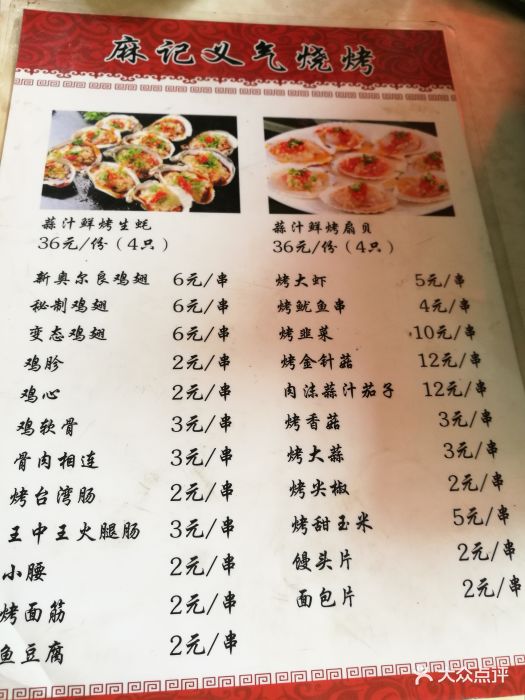 麻记义气烧烤
蒜汁鲜烤生蚝
36元/份（4只）
蒜汁鲜烤扇贝
36元/份（4只）
新奥尔良鸡翅 6元/串
秘制鸡翅 6元/串
变态鸡翅 6元/串
鸡胗 2元/串
鸡心 2元/串
鸡软骨 3元/串
骨肉相连 3元/串
烤台湾肠 2元/串
王中王火腿肠 3元/串
小腰 2元/串
烤面筋 2元/串
鱼豆腐 2元/串
烤大虾 5元/串
烤鱿鱼串 4元/串
烤韭菜 10元/串
烤金针菇 12元/串
肉沫蒜汁茄子 12元/串
烤香菇 3元/串
烤大蒜 3元/串
烤尖椒 2元/串
烤甜玉米 5元/串
馒头片 2元/串
面包片 2元/串
大众点评